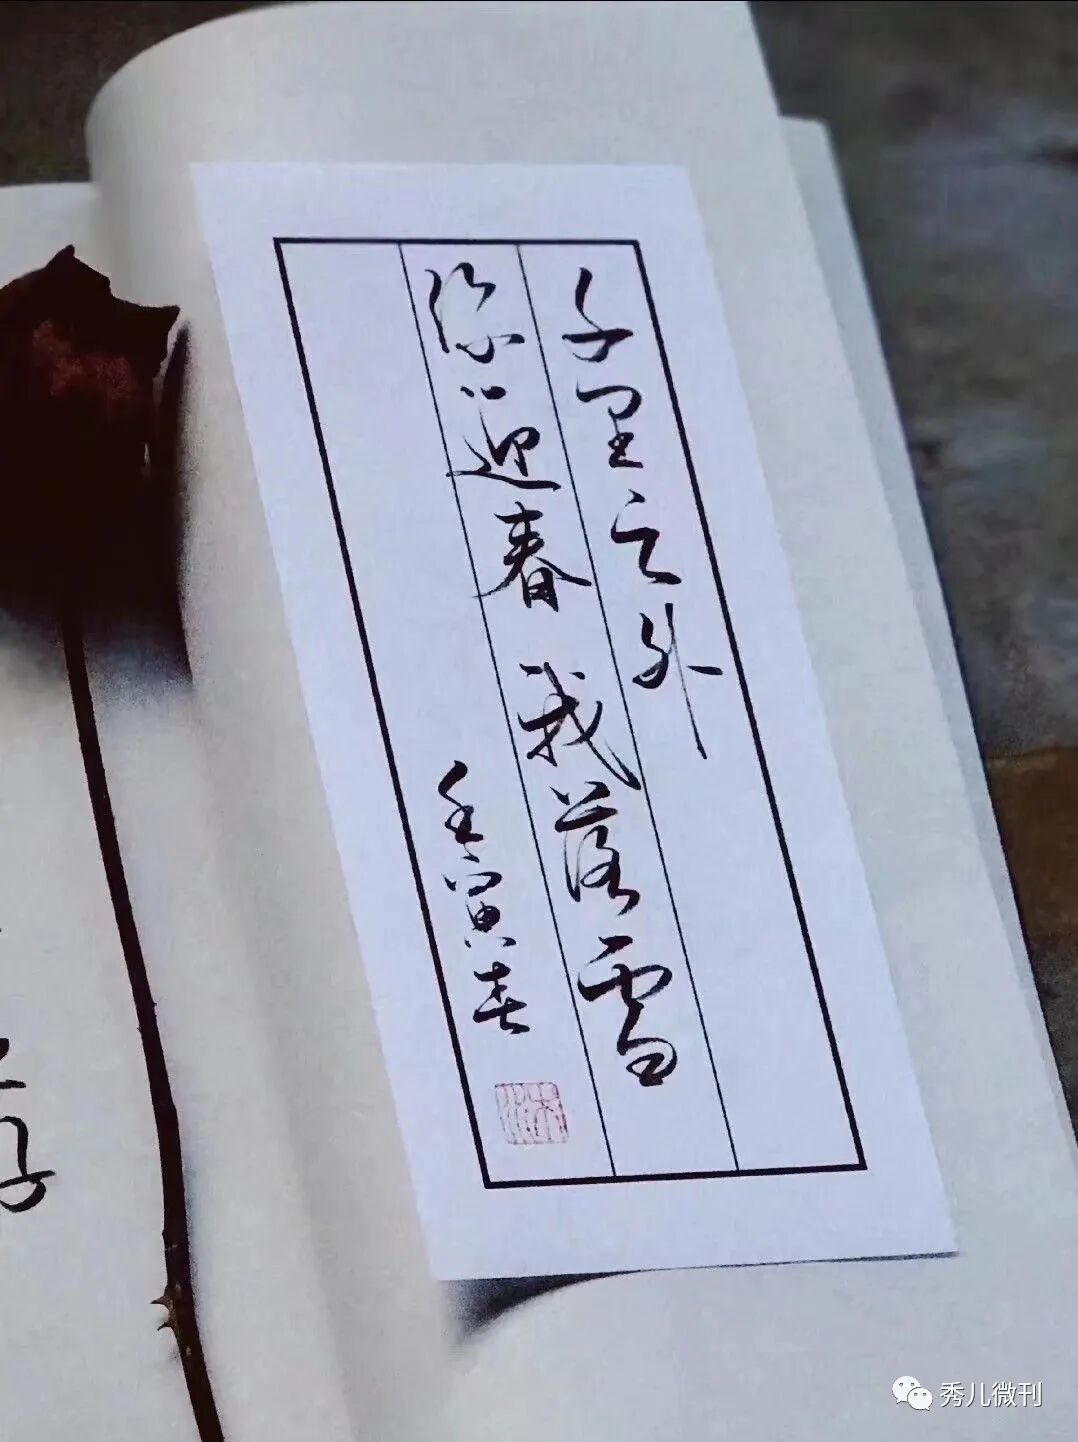 千里之外
你迎春我落雪
壬寅春
秀儿微刊